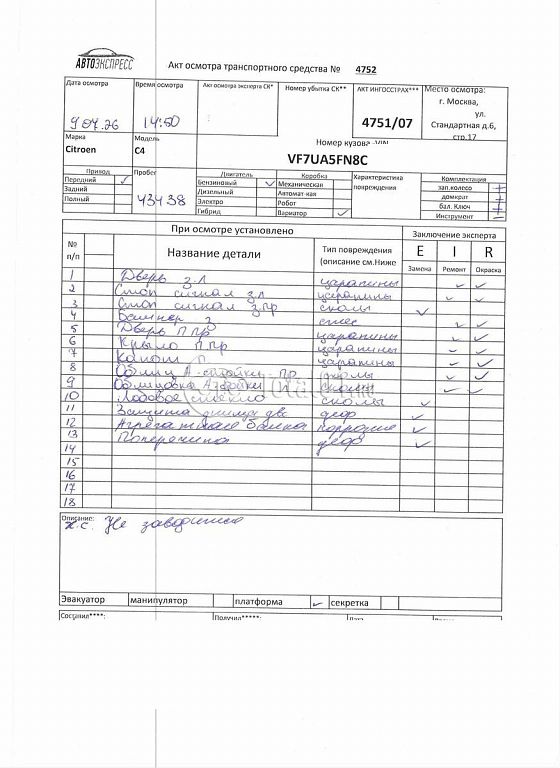 АВТОЭКСПРЕСС
Акт осмотра транспортного средства № 4752
Дата осмотра
Время осмотра
Акт осмотра эксперта СК*
Номер убытка СК**
АКТ ИНГОССТРАХ***
Место осмотра:
г. Москва,
ул.
Стандартная д.6,
стр.17
14:50
4751/07
Марка
Модель
Номер кузова
Citroen
C4
VF7UA5FN8C
Привод
Пробег
Двигатель
Коробка
Характеристика повреждения
Комплектация
Передний
Задний
Полный
43438
Бензиновый
Дизельный
Электро
Гибрид
Механическая
Автомат-кая
Робот
Вариатор
зап.колесо
домкрат
бал. Ключ
Инструмент
При осмотре установлено
Заключение эксперта
№ п/п
Название детали
Тип повреждения (описание см.Ниже
E
I
R
Замена
Ремонт
Окраска
1 Дверь з л царапины
2 Стоп сигнал з л царапины
3 Стоп сигнал з пр сколы
4 Бампер з
5 Дверь п пр царапины
6 Крыло п пр царапины
7 Капот п царапины
8 Облиц А-стойки пр сколы
9 Облицовка А стойки сколы
10 Лобовое стекло сколы
11 Защита деф
12
13 Поперечина деф
14
15
16
17
18
Описание:
Не заводится
Эвакуатор
манипулятор
платформа
секретка
Составил****:
Получил*****:
Дата